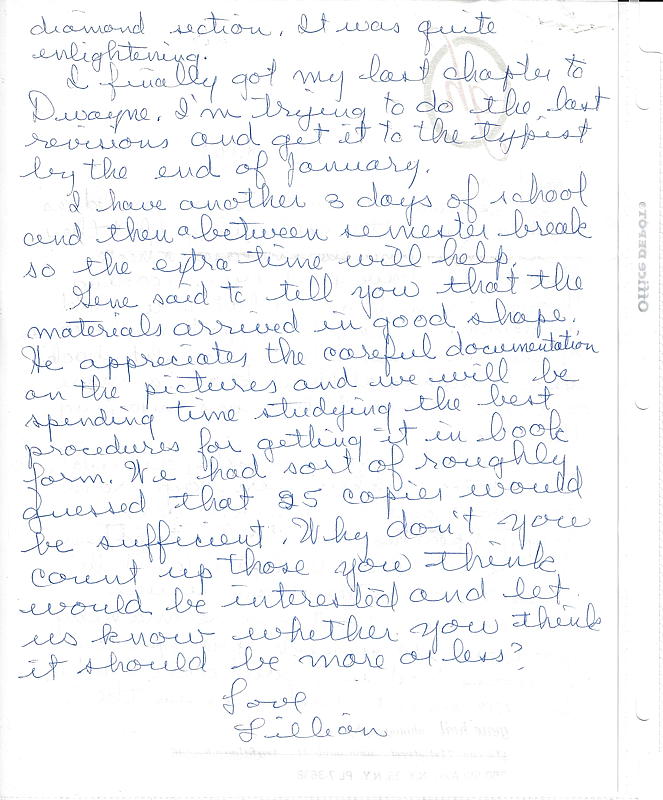 diamond section. It was quite
enlightening.
I finally got my last chapter to
Dwayne. I'm trying to do the last
revisions and get it to the typist
by the end of January.
I have another 3 days of school
and then a between semester break
so the extra time will help.
Gene said to tell you that the
materials arrived in good shape.
He appreciates the careful documentation
on the pictures and we will be
spending time studying the best
procedures for getting it in book
form. We had sort of roughly
guessed that 25 copies would
be sufficient. Why don't you
count up those you think
would be interested and let
us know whether you think
it should be more or less?
Love
Lillian
Office DEPOT